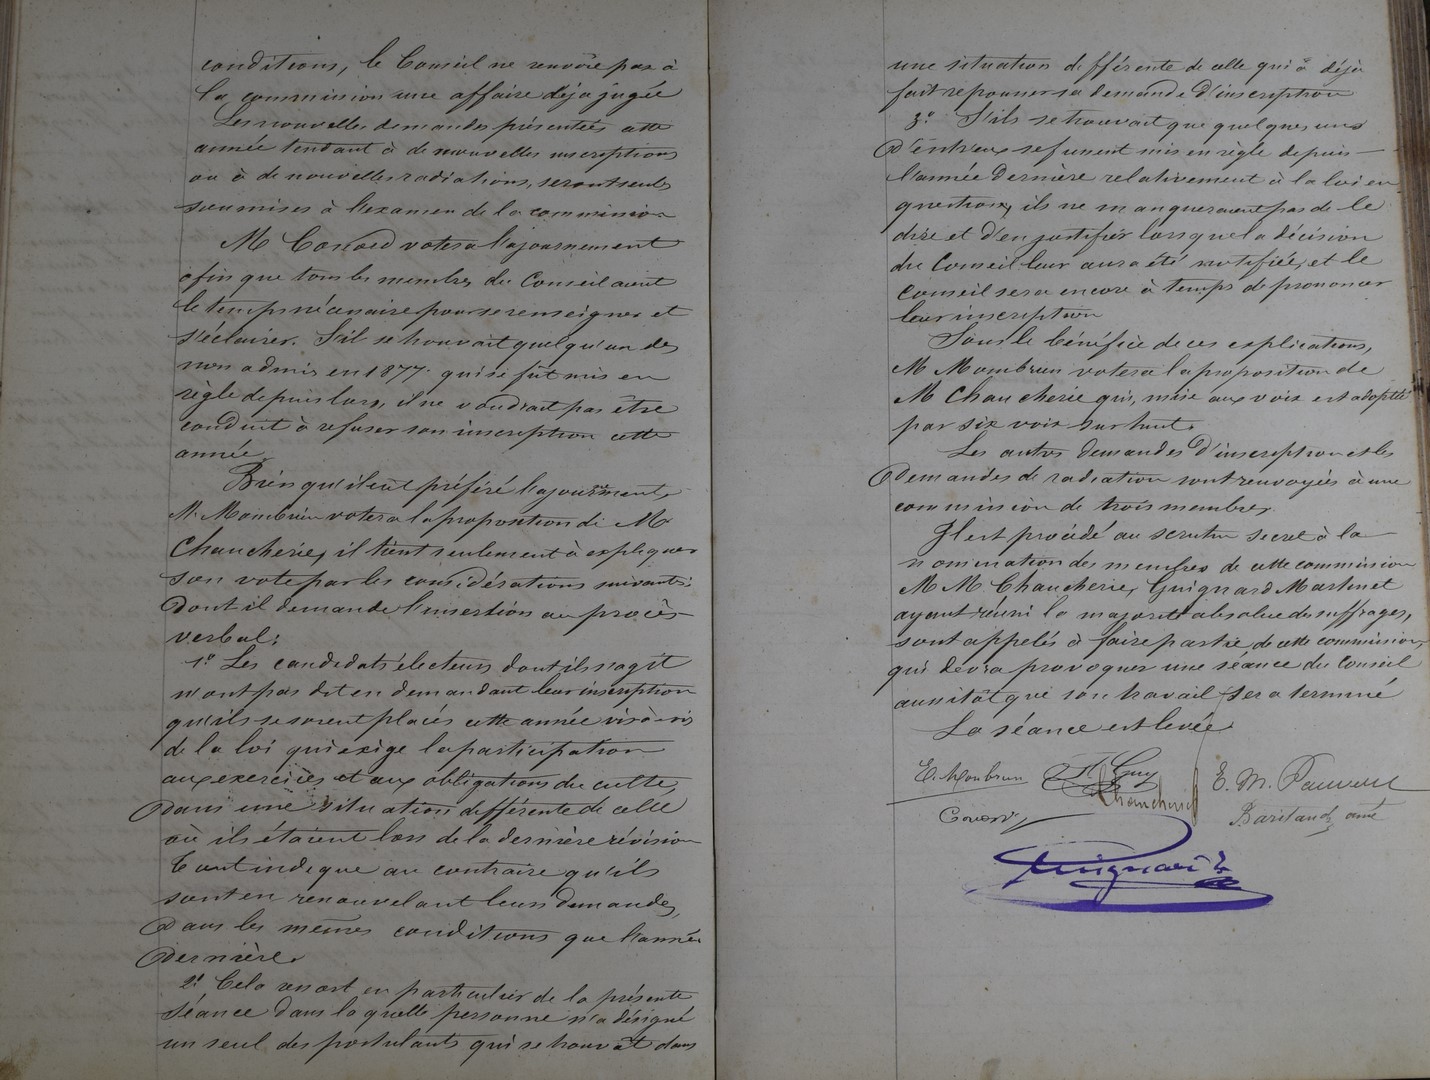 conditions, le Conseil ne renvoie pas à
la commission une affaire déja jugée
Les nouvelles demandes présentées cette
année tendant à de nouvelles inscriptions
ou à de nouvelles radiations, seront seules
soumises à l'examen de la commission
M Conord votera l'ajournement
afin que tous les membres du Conseil aient
le temps nécessaire pour se renseigner et
s'éclairer. S'il se trouvait quelqu'un des
non admis en 1877. qui se fût mis en
règle depuis lors, il ne voudrait pas être
conduit à refuser son inscription cette
année
Bien qu'il eut préféré l'ajournement,
M. Mombrun votera la proposition de M
Chaucherie, il tient seulement à expliquer
son vote par les considérations suivantes
dont il demande l'insertion au procès
verbal:
1º Les candidats électeurs dont il s'agit
n'ont pas dit en demandant leur inscription
qu'ils se soient placés cette année vis à vis
de la loi qui exige la participation
aux exercices et aux obligations du culte,
dans une situation différente de celle
où ils étaient lors de la dernière révision
Tout indique au contraire qu'ils
sont en renouvelant leurs demandes,
dans les mêmes conditions que l'année
dernière.
2º Cela ressort en particulier de la présente
séance dans laquelle personne n'a désigné
un seul des postulants qui se trouvât dans
une situation différente de celle qui a déjà
fait repousser sa demande d'inscription
3º S'il se trouvait que quelques uns
d'entr'eux se fussent mis en règle depuis
l'année dernière relativement à la loi en
question, ils ne manqueraient pas de le
dire et d'en justifier lorsque la décision
du Conseil leur aura été notifiée, et le
Conseil sera encore à temps de prononcer
leur inscription
Sous le bénéfice de ces explications,
M Mombrun votera la proposition de
M Chaucherie qui, mise aux voix est adoptée
par six voix sur huit.
Les autres demandes d'inscription et les
demandes de radiation sont renvoyées à une
commission de trois membres.
Il est procédé au scrutin secret à la
nomination des membres de cette commission
M M Chaucherie, Guignard Martinet
ayant réuni la majorité absolue des suffrages,
sont appelés à faire partie de cette commission,
qui devra provoquer une séance du Conseil
aussitôt que son travail sera terminé
La séance est levée
E. Mombrun Guy E. M.
Chaucherie
Conord Baritaud, ainé
Guignard